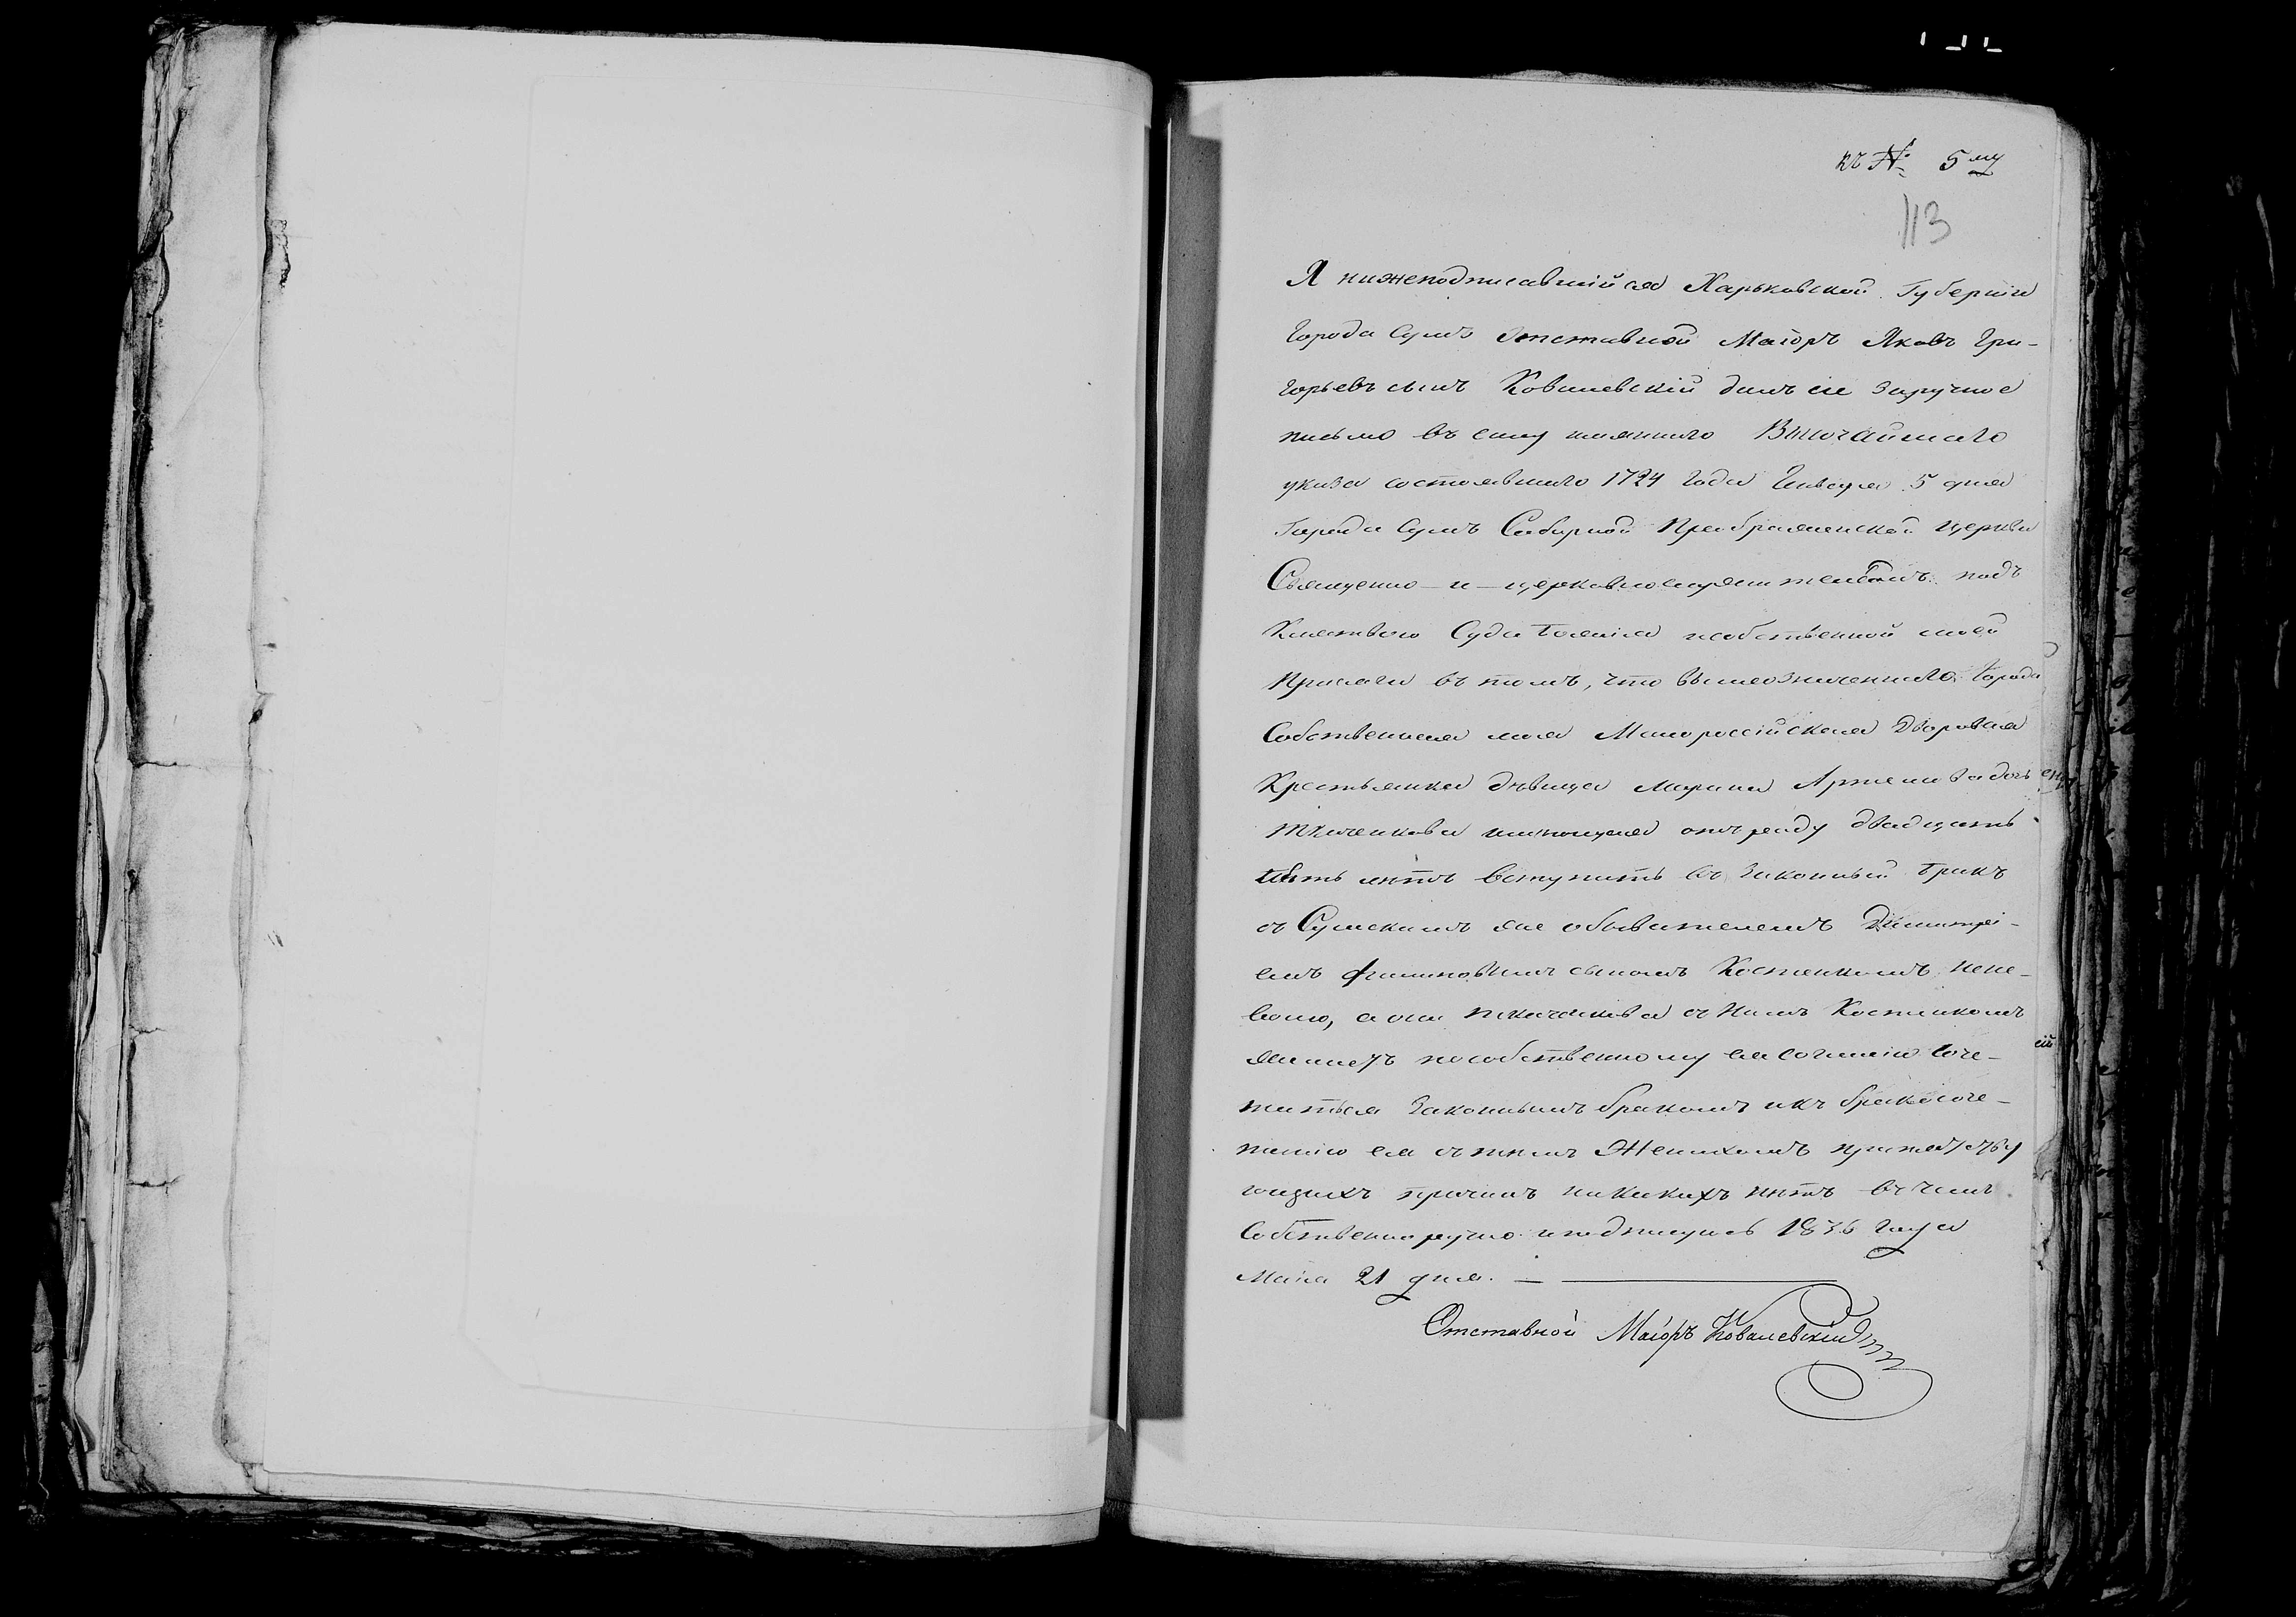 къ № 5му
113
Я нижеподписавшійся Харьковской Губерніи
Города Сумъ Отставной Маіоръ Яковъ Гри-
горьевъ сынъ Ковалевскій далъ сіе заручное
письмо въ силу имяннаго Высочайшаго
указа состоявшаго 1724 года Генваря 5 дня
Города Сумъ Соборной Преображенской церкви
Священно-и-церковнослужителямъ подъ
Клятвою Суда Божія и собственной моей
Присяги въ томъ, что вышеозначеннаго Города
Собственная моя Малороссійская Дворовая
Крестьянка дѣвица Марина Артемова дочь
Ткаченкова имеющая отъ роду двадцать
лѣтъ вступить въ законный бракъ
съ Сумскимъ же обывателемъ Димитрі-
емъ Филиповымъ сыномъ Костенкомъ нене-
волю, а она Ткаченкова съ нимъ Костенкомъ
желаетъ по собственному ея согласію соче-
таться законнымъ бракомъ и къ бракосоче-
танію ея съ тѣмъ Женихомъ препятству
ющихъ причинъ никакихъ нѣтъ въ чемъ
Собственноручно и подписуюсь 1836 года
Маія 21 дня. —
Отставной Маіоръ Ковалевскій